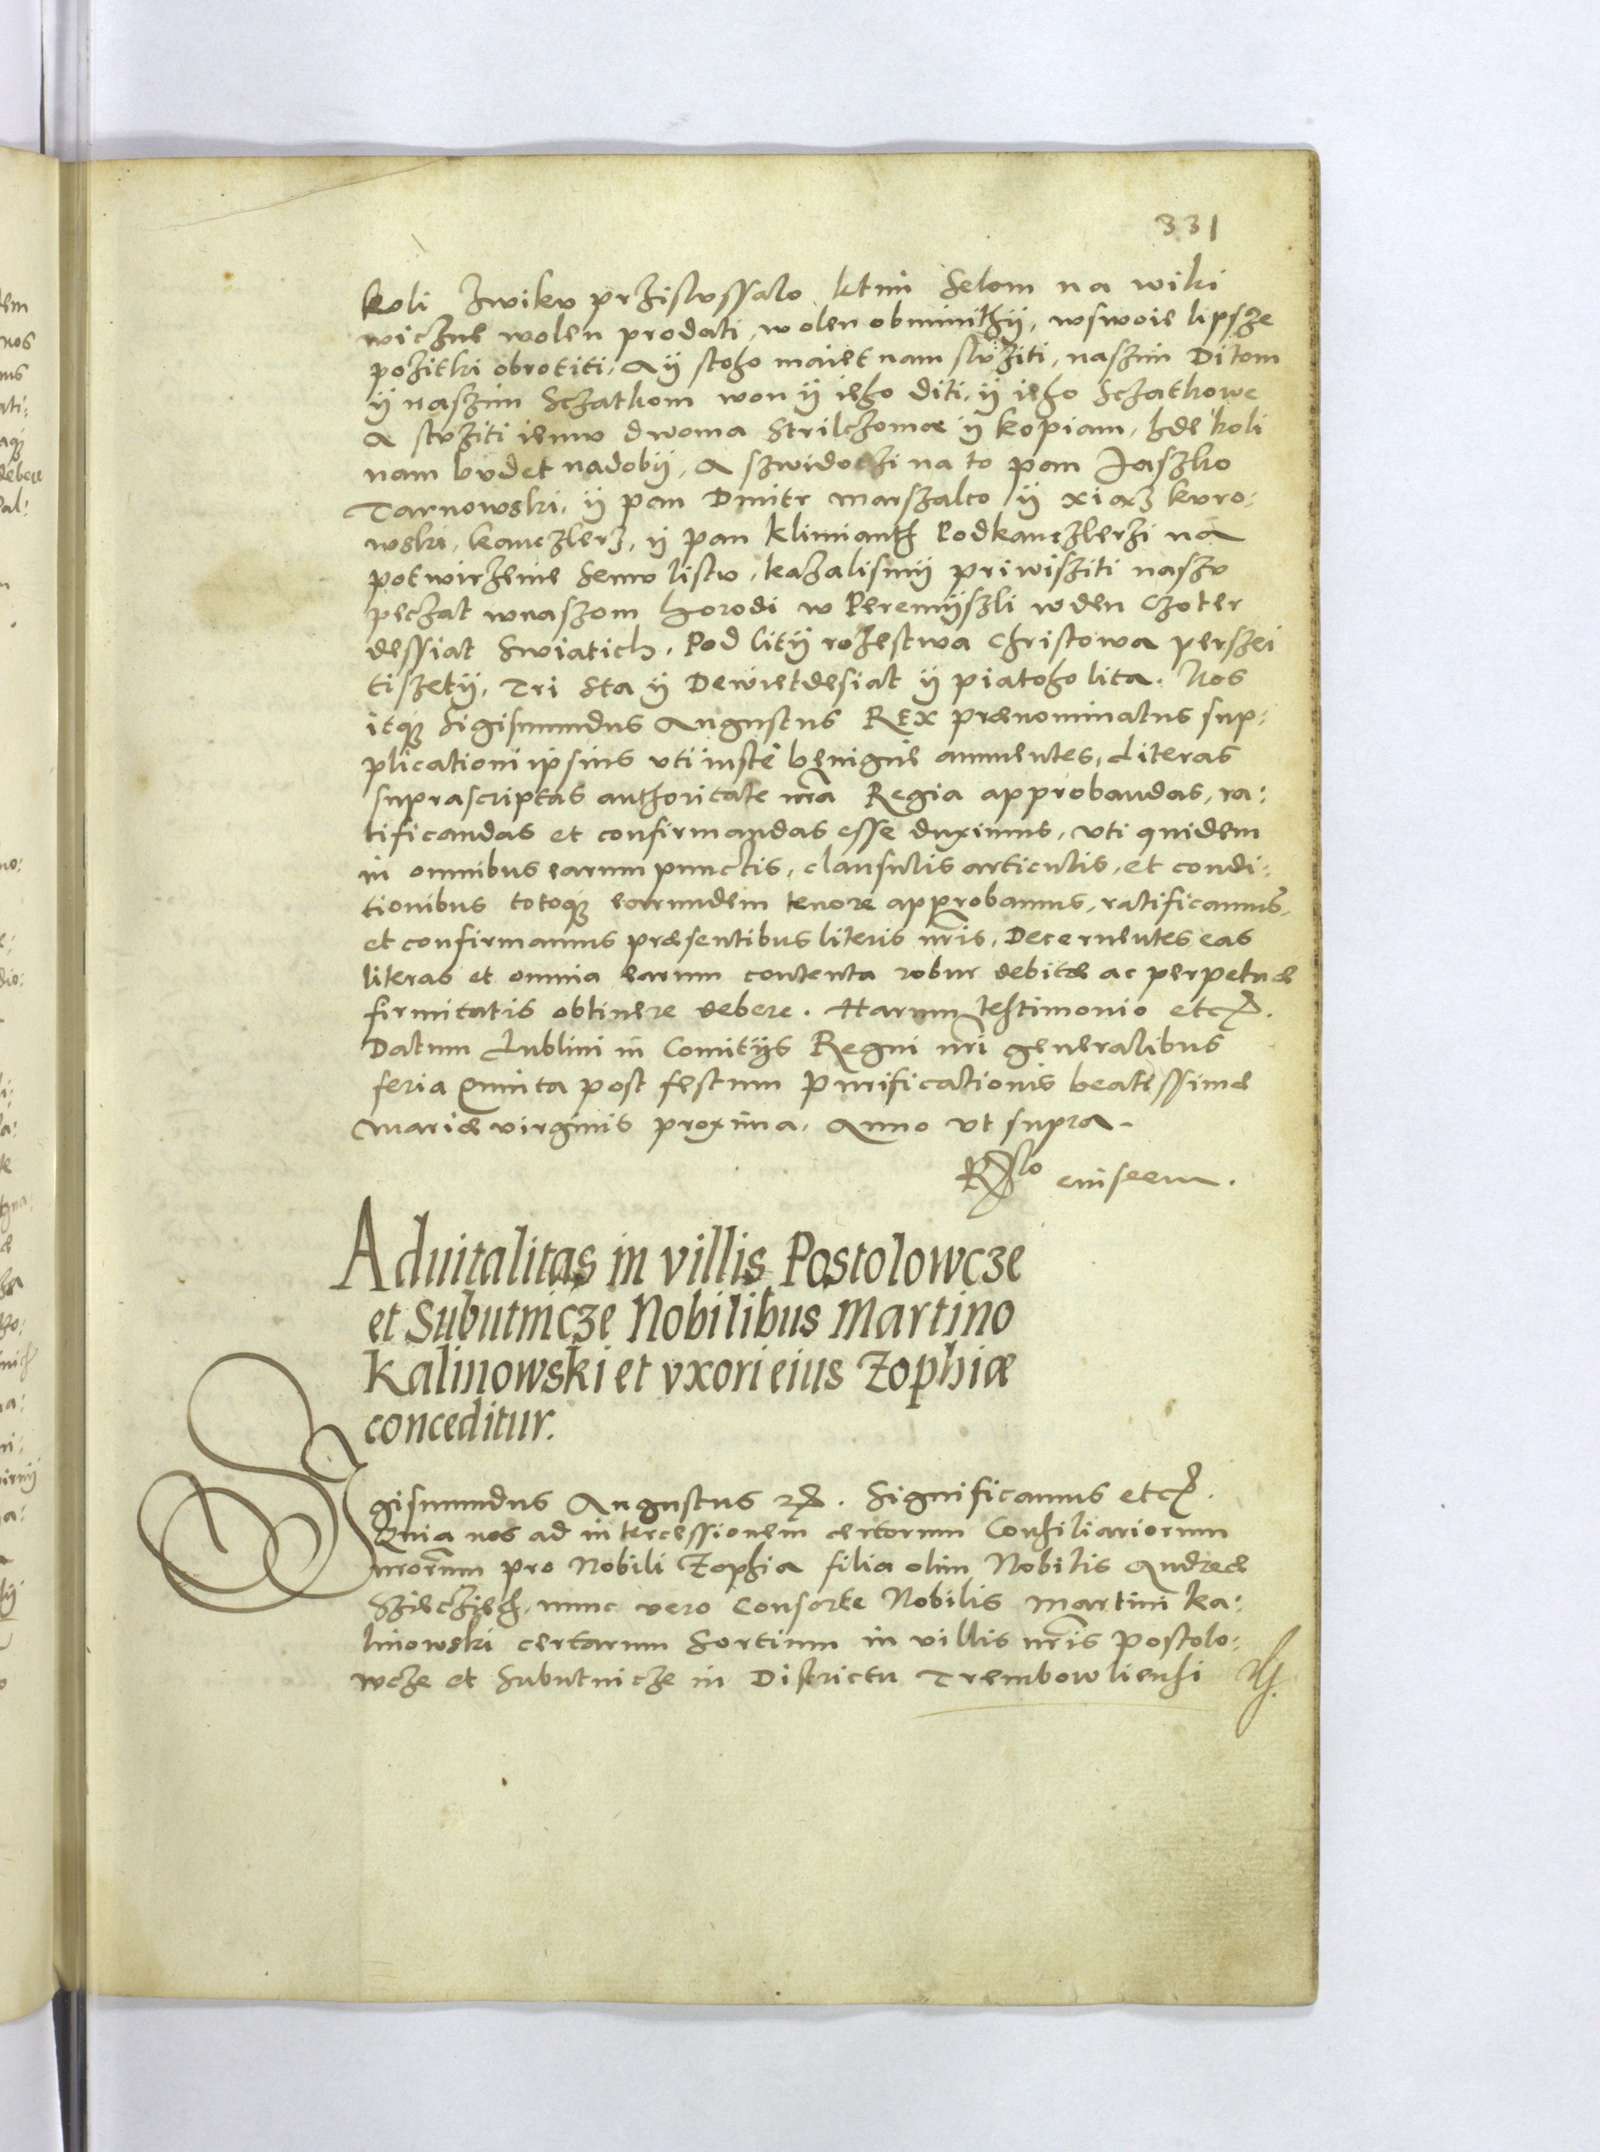 331
koli zwiku przislussalo k tim selom na wiki
wiczne wolen prodati, wolen obminithÿ, wswoie lipsze
pożitki obrotiti, Aÿ stoho maiet nam służiti, naszim Ditom
ÿ naszim Sczathom won ÿ ieho diti, ÿ ieho Sczathowe
A służiti iemu dwoma Strilczomae ÿ kopiam, hde koli
nam budet nadobÿ, A szwidoczi na to pan Jaszko
Tarnowski, ÿ pan Dmitr marszalco ÿ xiaxz kuro:
wski, kanczlerz, ÿ pan Klimianth Podkanczlerzi na
potwirzenie semu listu, kazalismÿ priwisziti naszu
peczat wnaszom horodi w Peremÿszli w den Czoter
dessiat Swiatich, Pod litÿ rożestwa Christowa perszei
tiszetÿ, Tri sta ÿ Dewietdesiat ÿ piatoho lita. Nos
itaq; Sigismundus Augustus REX prænominatus sup:
plicationi ipsius uti iuste benigne annuentes, Literas
suprascriptas authoritate nra Regia approbandas, ra:
tificandas et confirmandas esse duximus, vti quidem
in omnibus earum punctis, clausulis articulis, et condi:
tionibus totoq; earundem tenore approbamus, ratificamus,
et confirmamus præsentibus literis nris, Decernentes eas
literas et omnia earum contenta robur debitæ ac perpetuæ
firmitatis obtinere debere. Harum testimonio etc.
Datum Lublini in Comitÿs Regni nri generalibus
feria Quinta post festum Purificationis beatissimæ
Mariæ virginis proxima, Anno ut supra.
Rlo eiuseem.
Aduitalitas in villis Postolowcze
et Subutnicze Nobilibus Martino
Kalinowski et vxori eius Zophiæ
conceditur.
Sigismundus Augustus etc. Significamus etc.
Quia nos ad intercessionem certorum Consiliariorum
nrorum pro Nobili Zophia filia olim Nobilis Andreæ
Szieczieh, nunc vero Consorte Nobilis Martini Ka:
linowski certarum Sortium in villis nris Postolo:
wcze et Subutnicze in Districtu Trembowliensi